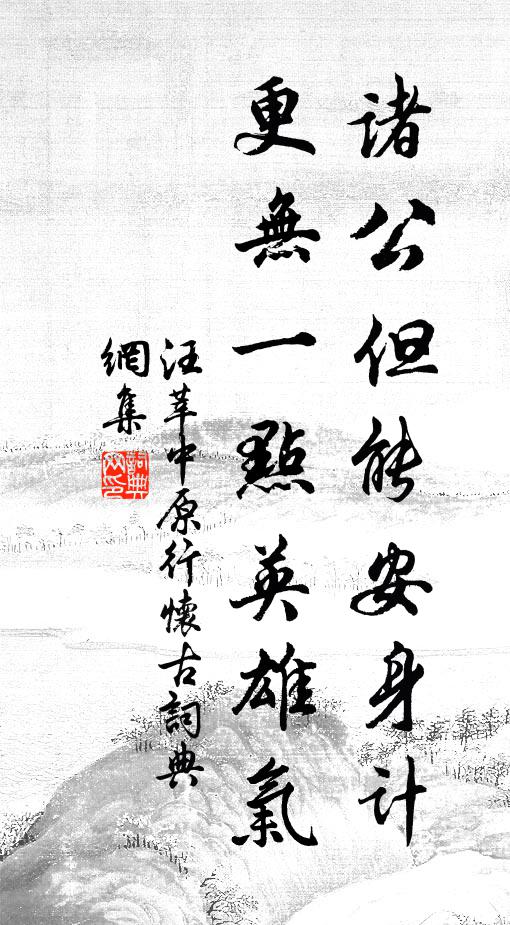 諸公但能安身計
更無一點英雄氣
汪莘中原行懷古詞典
網集